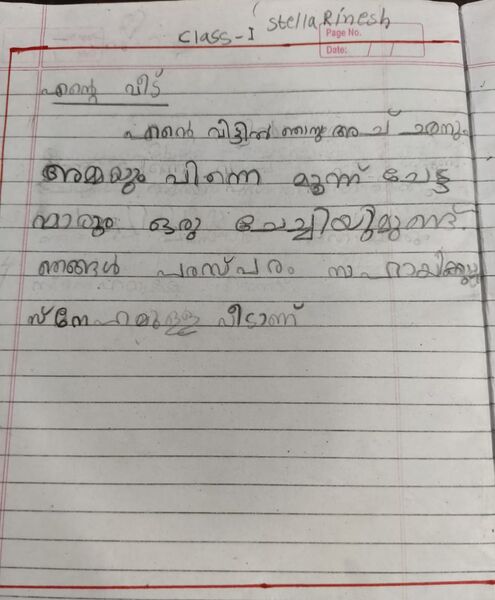 Stella Rinesh
Class-I
Page No.
Date: / /
എന്റെ വീട്
എന്റെ വീട്ടിൽ ഞാനും അച്ചനും
അമ്മയും പിന്നെ മൂന്ന് ചേട്ട
ന്മാരും ഒരു ചേച്ചിയുമുണ്ട്.
ഞങ്ങൾ പരസ്പരം സഹായിക്കുന്ന
സ്നേഹമുള്ള വീടാണ്